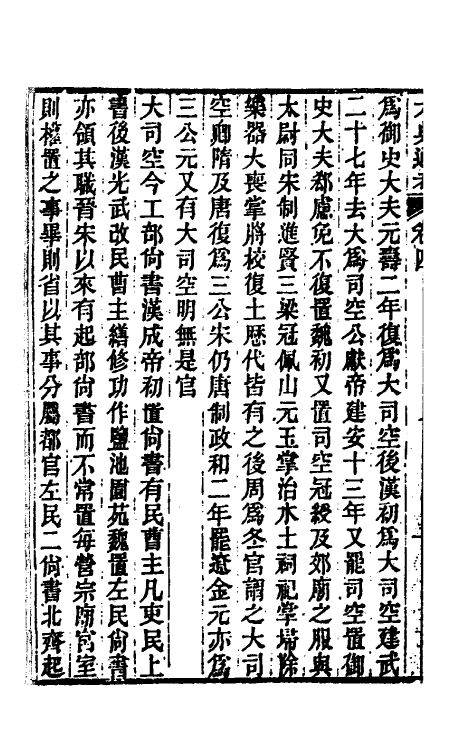 爲御史大夫元壽二年復爲大司空後漢初爲大司空建武
二十七年去大爲司空公獻帝建安十三年又罷司空置御
史大夫郗慮免不復置魏初又置司空冠綬及郊廟之服與
太尉同宋制進賢三梁冠佩山元玉掌治水土祠祀掌埽除
樂器大喪掌將校復土歷代皆有之後周爲冬官謂之大司
空卿隋及唐復爲三公宋仍唐制政和二年罷遼金元亦爲
三公元又有大司空明無是官
大司空今工部尙書漢成帝初置尙書有民曹主凡吏民上
書後漢光武改民曹主繕修功作鹽池園苑魏置左民尙書
亦領其職晉宋以來有起部尙書而不常置每營宗廟宮室
則權置之事畢則省以其事分屬都官左民二尙書北齊起